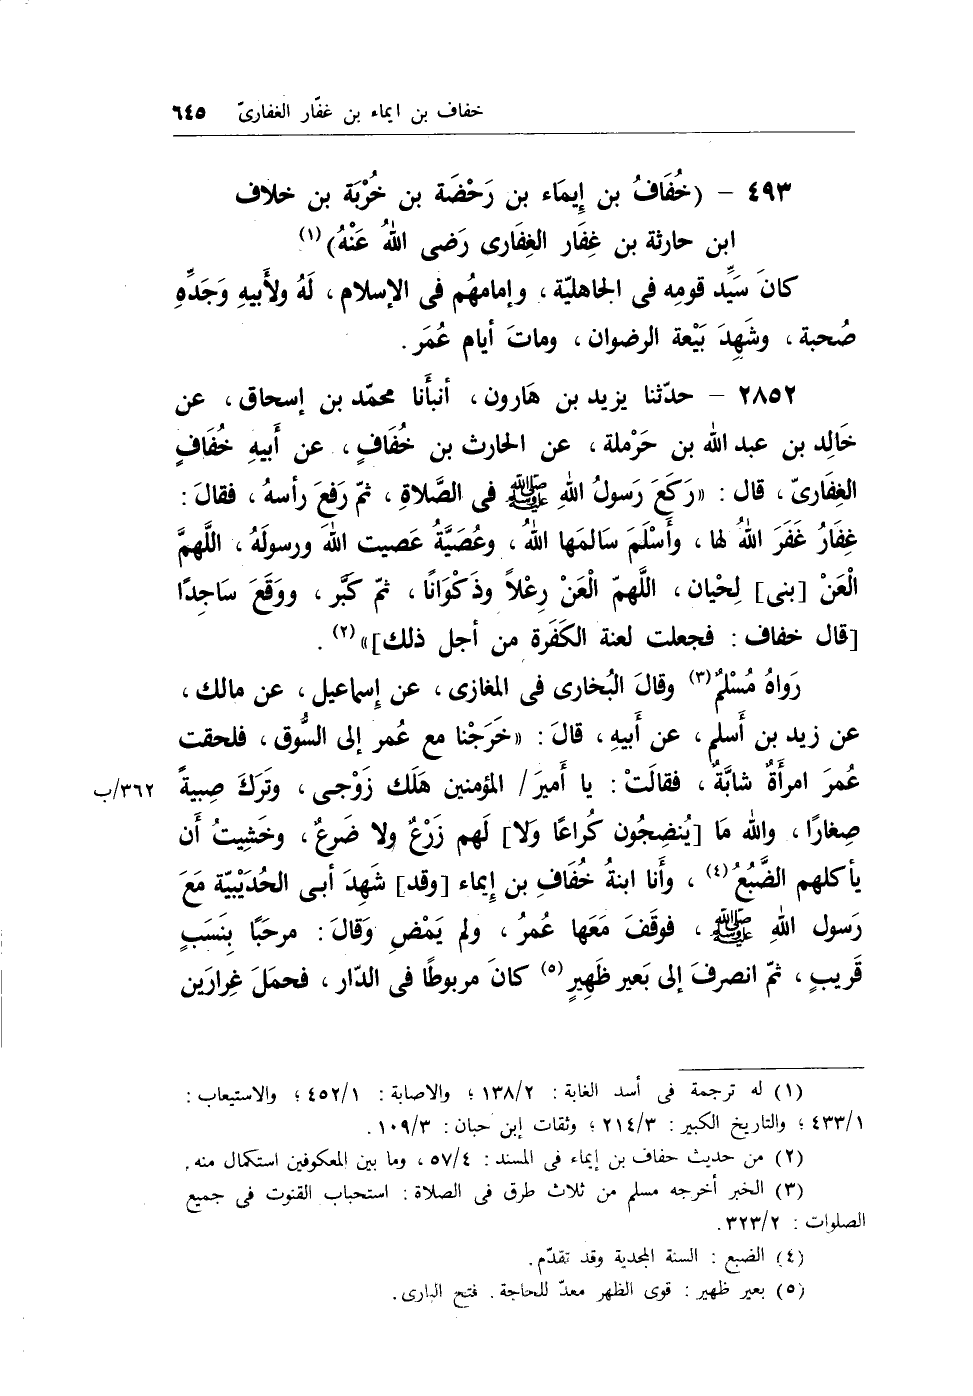 خفاف بن ايماء بن غفّار الغفارىّ ٦٤٥
٤٩٣ – (خُفَافُ بن إِيمَاء بن رَحْضَة بن خُرْبَة بن خلاف
ابن حارثة بن غِفَار الغِفَارى رَضى اللهُ عَنْهُ)(١)
كانَ سَيِّد قومِه فى الجَاهليّة ، وإمامهُم فى الإسلام ، لَهُ ولأَبيهِ وَجَدِّهِ
صُحبة ، وشَهِدَ بَيْعة الرضوان ، وماتَ أيام عُمَر .
٢٨٥٢ – حدّثنا يزيد بن هَارون ، أنبأَنا محمّد بن إسحاق ، عن
خَالِد بن عبد الله بن حَرْملة ، عن الحَارث بن خُفَافٍ ، عن أَبيهِ خُفَافٍ
الغِفَارىّ ، قال : «رَكَعَ رَسولُ اللهِ ﷺ فى الصَّلاةِ ، ثمّ رَفعَ رأسهُ ، فقالَ :
غِفَارُ غَفَرَ اللهُ لها ، وأَسْلَمَ سَالمَها اللهُ ، وعُصَيَّةُ عَصيت اللهَ ورسولَهُ ، اللَّهمَّ
الْعَنْ [بنى] لِحْيان ، اللَّهمّ الْعَنْ رِعْلاً وذَكْوَانًا ، ثمّ كَبَّر ، ووَقَعَ سَاجِدًا
[قال خفاف : فجعلت لعنة الكَفَرة من أجل ذلك]»(٢) .
رَواهُ مُسْلمٌ(٣) وقالَ البُخارى فى المغازى ، عن إِسماعيل ، عن مالك ،
عن زيد بن أَسلم ، عن أَبيهِ ، قالَ : «خَرَجْنا مع عُمر إلى السُّوق ، فلحقت
عُمرَ امرأَةٌ شابَّةٌ ، فقالَتْ : يا أَميرَ/ المؤمنين هَلَك زَوْجى ، وتَركَ صِبيةً ٣٦٢/ب
صِغارًا ، والله مَا [يُنضِجُون كُراعًا وَلا] لَهم زَرْعٌ ولا ضَرعٌ ، وخَشِيتُ أن
يأكلهم الضَّبُعُ(٤) ، وأَنا ابنةُ خُفَافِ بن إِيماء [وقد] شَهِدَ أبى الحُدَيْبيّة مَعَ
رَسول اللهِ ﷺ ، فوقَفَ مَعَها عُمرُ ، ولم يَمْضِ وَقالَ : مرحَبًا بِنَسَبٍ
قَريبٍ ، ثمّ انصرفَ إلى بَعير ظَهِيرٍ(٥) كانَ مربوطًا فى الدّار ، فحملَ غِرارَين
(١) له ترجمة فى أسد الغابة : ١٣٨/٢ ؛ والاصابة : ٤٥٢/١ ؛ والاستيعاب :
٤٣٣/١ ؛ والتاريخ الكبير : ٢١٤/٣ ؛ وثقات إبن حبان : ١٠٩/٣ .
(٢) من حديث خفاف بن إيماء فى المسند : ٥٧/٤ ، وما بين المعكوفين استكمال منه .
(٣) الخبر أخرجه مسلم من ثلاث طرق فى الصلاة : استحباب القنوت فى جميع
الصلوات : ٣٢٣/٢ .
(٤) الضبع : السنة المجدية وقد تقدّم .
(٥) بعير ظهير : قوى الظهر معدّ للحاجة . فتح البارى .